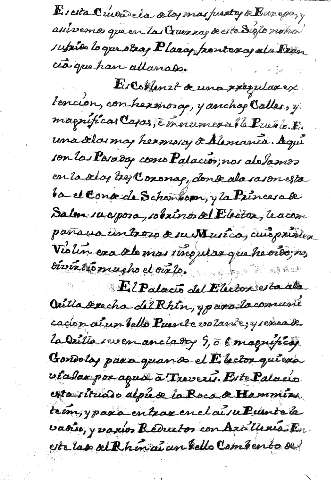 Es esta Ciudadela de las mas fuertes de Europa, y
asi vemos que en las Guerras de este Siglo no ha
sufrido lo que otras Plazas fronteras a la Fran
cia que han allanado.
Es Coblentz de una irregular ex
tencion, con hermosas, y anchas Calles, y
magnificas Casas, è innumerable Pueblo. E.
una de las mas hermosas de Alemania. Aqui
son las Posadas como Palacios; nos alojamos
en la de las tres Coronas, donde a la sason esta
ba el Conde de Schonborn, y la Princesa de
Salm su esposa, sobrinos del Elector, le acom
pañava un trozo de su Musica, cuio primer
Violin era de lo mas singular que he oido; nos
divirtio mucho el oirlo.
El Palacio del Elector esta a la
Orilla derecha del Rhin, y para la comuni
cacion ai un bello Puente volante; y cerca de
la Orilla se ven anclados 5, ò 6 magnificas
Gondolas para quando el Elector quiera
viajar por agua à Treveris. Este Palacio
esta situado al pie de la Roca de Hammers
tein, y para entrar en el ai su Puente le
vadizo, y varios Reductos con Artilleria. En
este lado del Rhin ai un bello Combento de